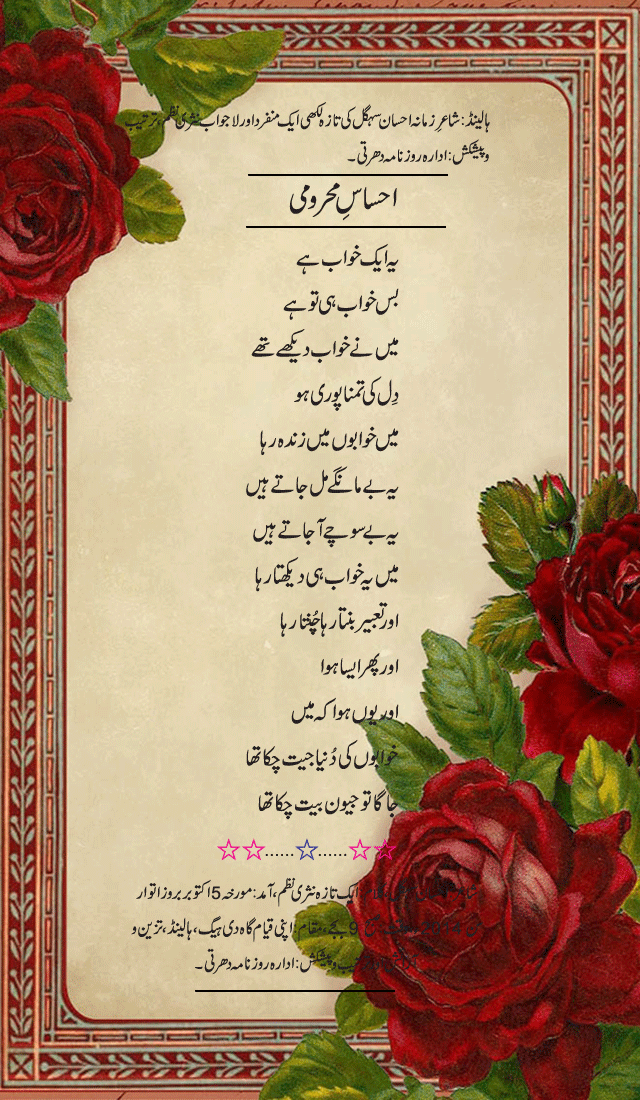 ہالینڈ: شاعرِ زمانہ احسان سہگل کی تازہ لکھی ایک منفرد اور لاجواب نثری نظم، ترتیب
و پیشکش: ادارہ روزنامہ دھرتی۔
احساسِ محرومی
یہ ایک خواب ہے
بس خواب ہی تو ہے
میں نے خواب دیکھے تھے
دِل کی تمنا پوری ہو
میں خوابوں میں زندہ رہا
یہ بے مانگے مل جاتے ہیں
یہ بے سوچے آ جاتے ہیں
میں یہ خواب ہی دیکھتا رہا
اور تعبیر بنتا رہا چُنتا رہا
اور پھر ایسا ہوا
اور یوں ہوا کہ میں
خوابوں کی دُنیا جیت چکا تھا
جاگا تو جیون بیت چکا تھا
ایک تازہ نثری نظم، آمد: مورخہ 5 اکتوبر بروز اتوار
9 بجے، مقام: اپنی قیام گاہ دی ہیگ، ہالینڈ، تزین و
و پیشکش: ادارہ روزنامہ دھرتی۔